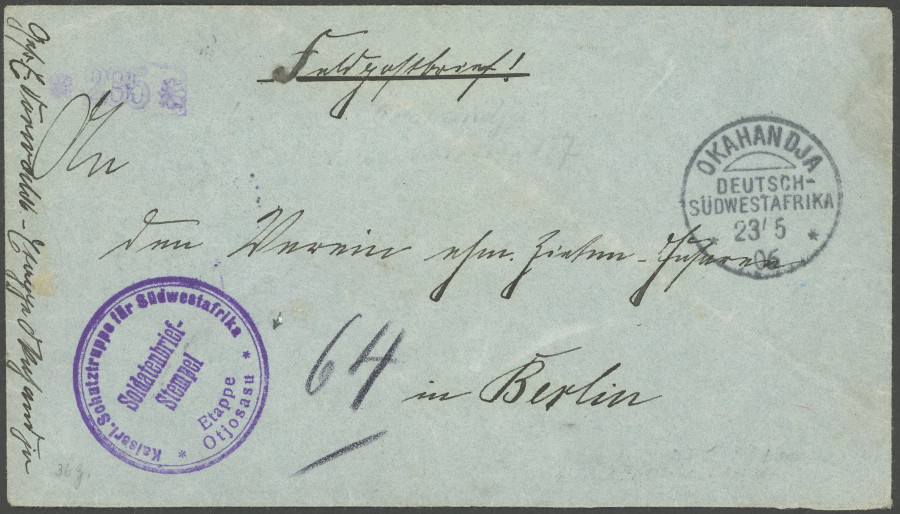 Feldpostbrief!
* 235 *
An
den Verein ehm. Zieten-Husaren
in Berlin
64
OKAHANDJA
DEUTSCH-
SÜDWESTAFRIKA
23/5
06
Kaiserl. Schutztruppe für Südwestafrika
Soldatenbrief-
Stempel
* Etappe *
Otjosasu
36 g.